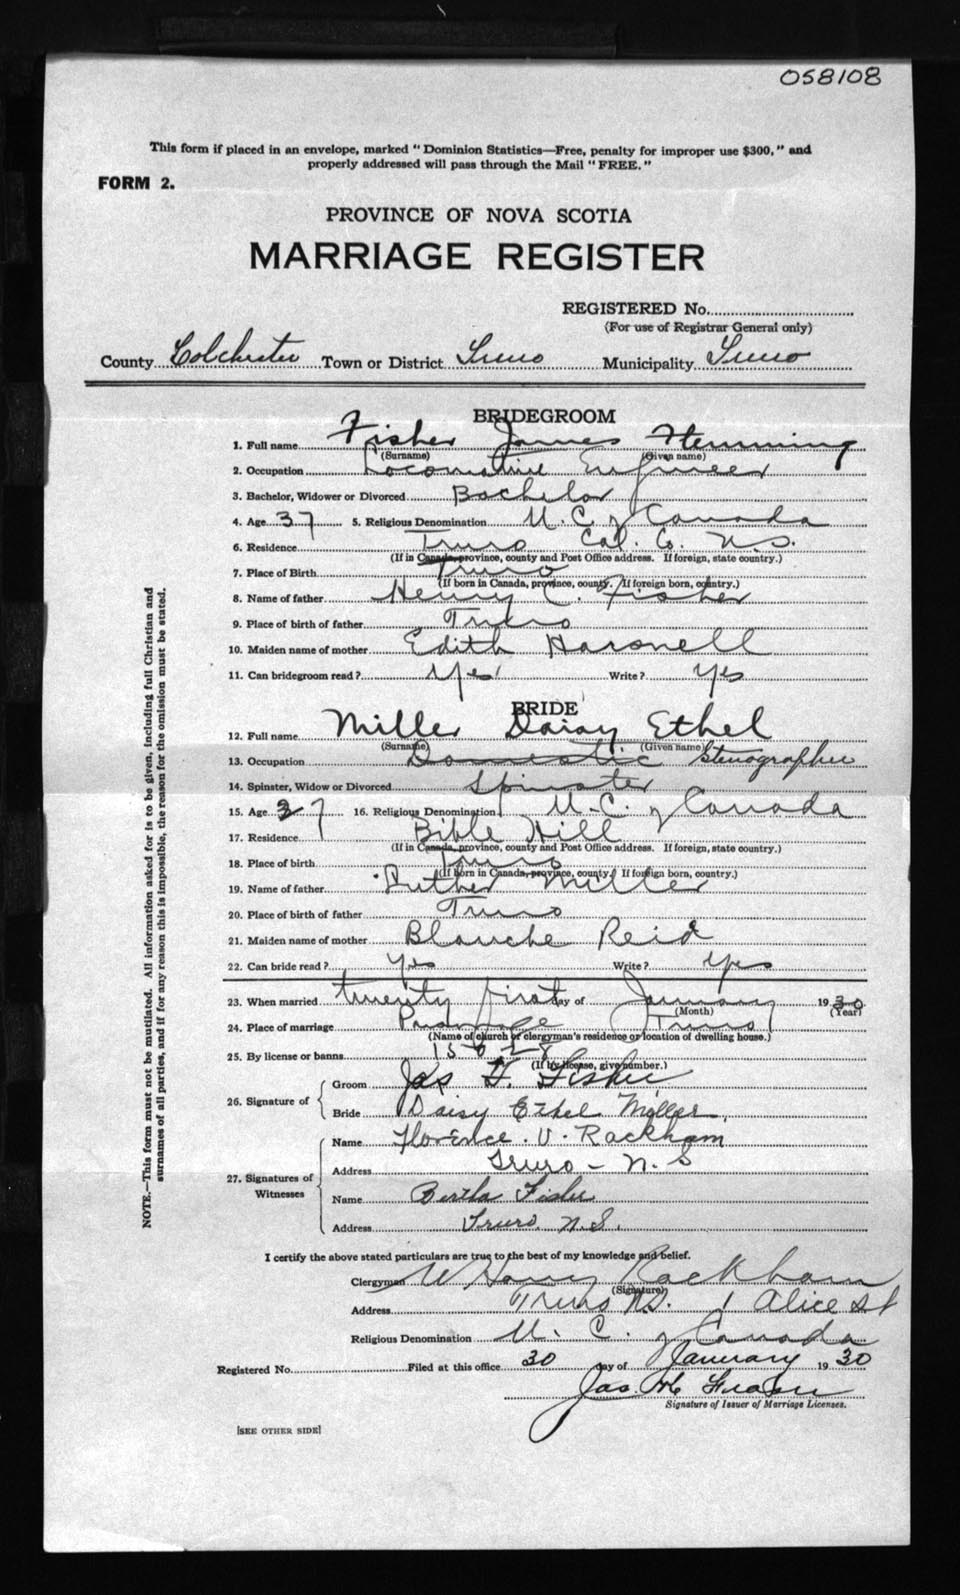 058108
This form if placed in an envelope, marked "Dominion Statistics—Free, penalty for improper use $300," and
properly addressed will pass through the Mail "FREE."
FORM 2.
PROVINCE OF NOVA SCOTIA
MARRIAGE REGISTER
REGISTERED No.
(For use of Registrar General only)
County Colchester Town or District Truro Municipality Truro
BRIDEGROOM
1. Full name Fisher James Flemming
(Surname) (Given name)
2. Occupation Locomotive Engineer
3. Bachelor, Widower or Divorced Bachelor
4. Age 37 5. Religious Denomination U. C. of Canada
6. Residence Truro Col. Co. N.S.
(If in Canada, province, county and Post Office address. If foreign, state country.)
7. Place of Birth Truro
(If born in Canada, province, county. If foreign born, country.)
8. Name of father Henry C. Fisher
9. Place of birth of father Truro
10. Maiden name of mother Edith
11. Can bridegroom read? Yes Write? Yes
BRIDE
12. Full name Miller Daisy Ethel
(Surname) (Given name)
13. Occupation Domestic Stenographer
14. Spinster, Widow or Divorced Spinster
15. Age 37 16. Religious Denomination U. C. of Canada
17. Residence Bible Hill
(If in Canada, province, county and Post Office address. If foreign, state country.)
18. Place of birth Truro
(If born in Canada, province, county. If foreign born, country.)
19. Name of father Luther Miller
20. Place of birth of father Truro
21. Maiden name of mother Blanche Reid
22. Can bride read? Yes Write? Yes
23. When married twenty first day of January 1930
(Month) (Year)
24. Place of marriage Parsonage Truro
(Name of church or clergyman's residence or location of dwelling house.)
25. By license or banns 15628
(If by license, give number.)
26. Signature of
Groom Jas F. Fisher
Bride Daisy Ethel Miller
27. Signatures of Witnesses
Name Florence. V. Rackham
Address Truro - N.S
Name Bertha Fisher
Address Truro. N.S.
I certify the above stated particulars are true to the best of my knowledge and belief.
Clergyman W Harry Rackham
(Signature)
Address Truro N.S. 1 Alice St
Religious Denomination U. C. of Canada
Registered No. Filed at this office 30 day of January 1930
Jas.
Signature of Issuer of Marriage Licenses.
[SEE OTHER SIDE]
NOTE.—This form must not be mutilated. All information asked for is to be given, including full Christian and
surnames of all parties, and if for any reason this is impossible, the reason for the omission must be stated.